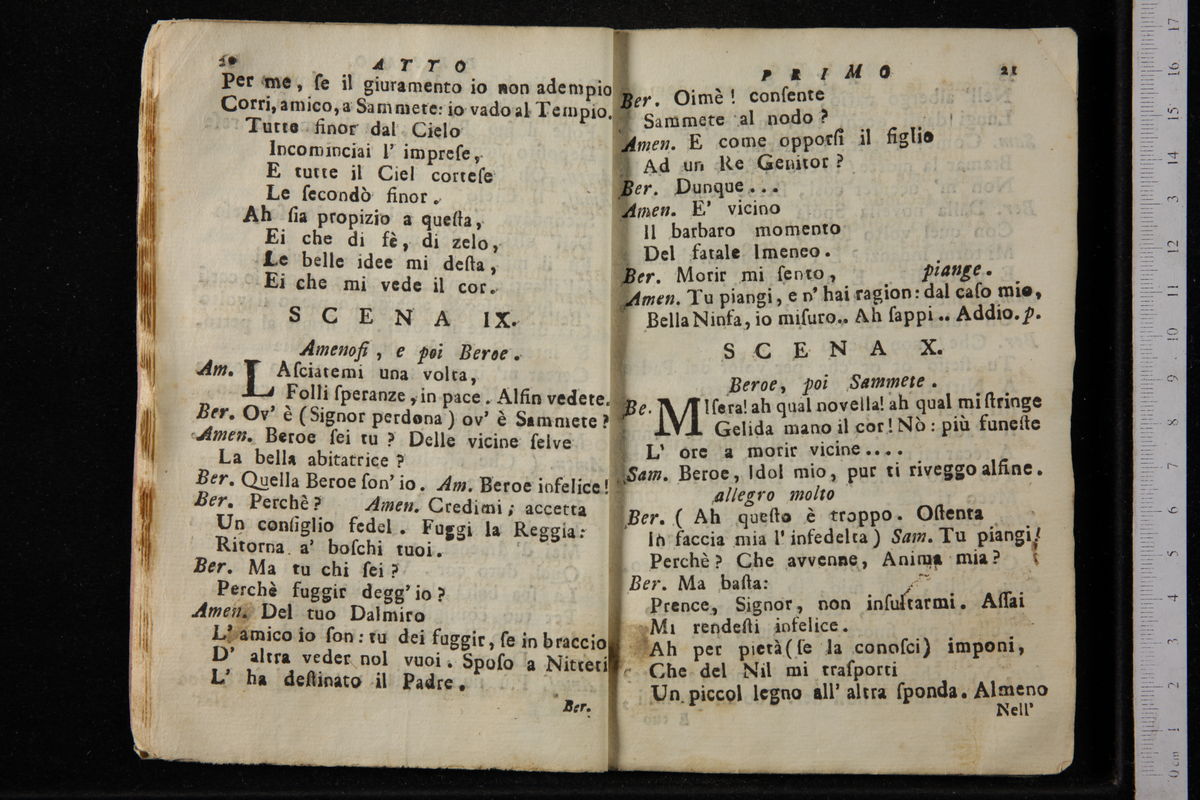 20 ATTO
Per me, ſe il giuramento io non adempio
Corri, amico, a Sammete: io vado al Tempio.
Tutto finor dal Cielo
Incominciai l' impreſe,
E tutte il Ciel corteſe
Le ſecondò finor.
Ah ſia propizio a queſta,
Ei che di fè, di zelo,
Le belle idee mi deſta,
Ei che mi vede il cor.
SCENA IX.
Amenofi, e poi Beroe.
Am. LAſciatemi una volta,
Folli ſperanze, in pace. Alfin vedete.
Ber. Ov' è (Signor perdona) ov' è Sammete?
Amen. Beroe ſei tu? Delle vicine ſelve
La bella abitatrice?
Ber. Quella Beroe ſon' io. Am. Beroe infelice!
Ber. Perchè? Amen. Credimi; accetta
Un conſiglio fedel. Fuggi la Reggia:
Ritorna a' boſchi tuoi.
Ber. Ma tu chi ſei?
Perchè fuggir degg' io?
Amen. Del tuo Dalmiro
L' amico io ſon: tu dei fuggir, ſe in braccio
D' altra veder nol vuoi. Spoſo a Nitteti
L' ha deſtinato il Padre.
Ber.
PRIMO 21
Ber. Oimè! conſente
Sammete al nodo?
Amen. E come opporſi il figlio
Ad un Re Genitor?
Ber. Dunque...
Amen. E' vicino
Il barbaro momento
Del fatale Imeneo.
Ber. Morir mi ſento, piange.
Amen. Tu piangi, e n' hai ragion: dal caſo mio,
Bella Ninfa, io miſuro.. Ah ſappi .. Addio. p.
SCENA X.
Beroe, poi Sammete.
Be. MIſera! ah qual novella! ah qual mi ſtringe
Gelida mano il cor! Nò: più funeſte
L' ore a morir vicine....
Sam. Beroe, Idol mio, pur ti riveggo alfine.
allegro molto
Ber. (Ah queſto è troppo. Oſtenta
In faccia mia l' infedelta) Sam. Tu piangi!
Perchè? Che avvenne, Anima mia?
Ber. Ma baſta:
Prence, Signor, non inſultarmi. Aſſai
Mi rendeſti infelice.
Ah per pietà (ſe la conoſci) imponi,
Che del Nil mi traſporti
Un piccol legno all' altra ſponda. Almeno
Nell'